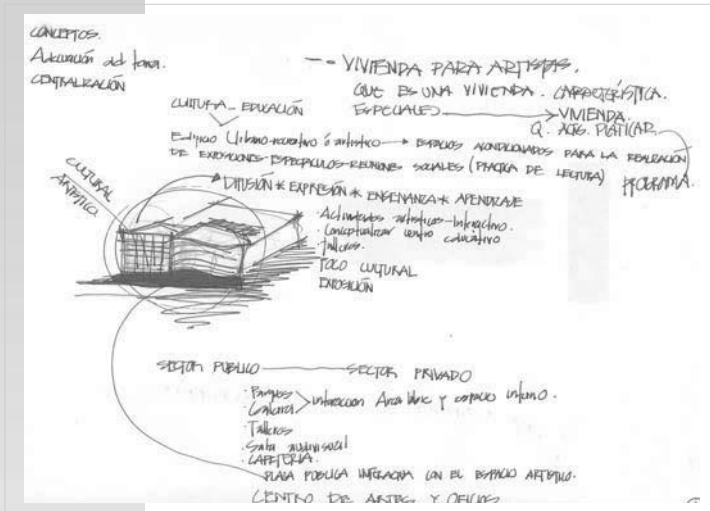 CONCEPTOS.
Adecuación del tema.
CENTRALIZACIÓN
-- VIVIENDA PARA ARTISTAS.
QUE ES UNA VIVIENDA. CARACTERÍSTICA.
ESPECIALES → VIVIENDA.
Q. ACTS. PLATICAR
CULTURA - EDUCACIÓN
Edificio Urbano-recreativo ó artístico → ESPACIOS ACONDICIONADOS PARA LA REALIZACIÓN
DE EXPOSICIONES-ESPECTACULOS-REUNIONES SOCIALES (PRACTICA DE LECTURA)
PROGRAMA.
CULTURAL
ARTISTICO.
DIFUSIÓN * EXPRESIÓN * ENSEÑANZA * APENDIZAJE
· Actividades artísticas-Interactivo.
· Conceptualizar centro educativo
· Talleres.
FOCO CULTURAL
EXPOSICIÓN
SECTOR PUBLICO — SECTOR PRIVADO
· Parques
· Galeria > interaccion Area libre y espacio interno.
· Talleres
· Sala audiovisual
· CAFETERIA.
PLAZA PUBLICA INTERACTUA CON EL ESPACIO ARTISTICO.
CENTRO DE ARTES Y OFICIOS